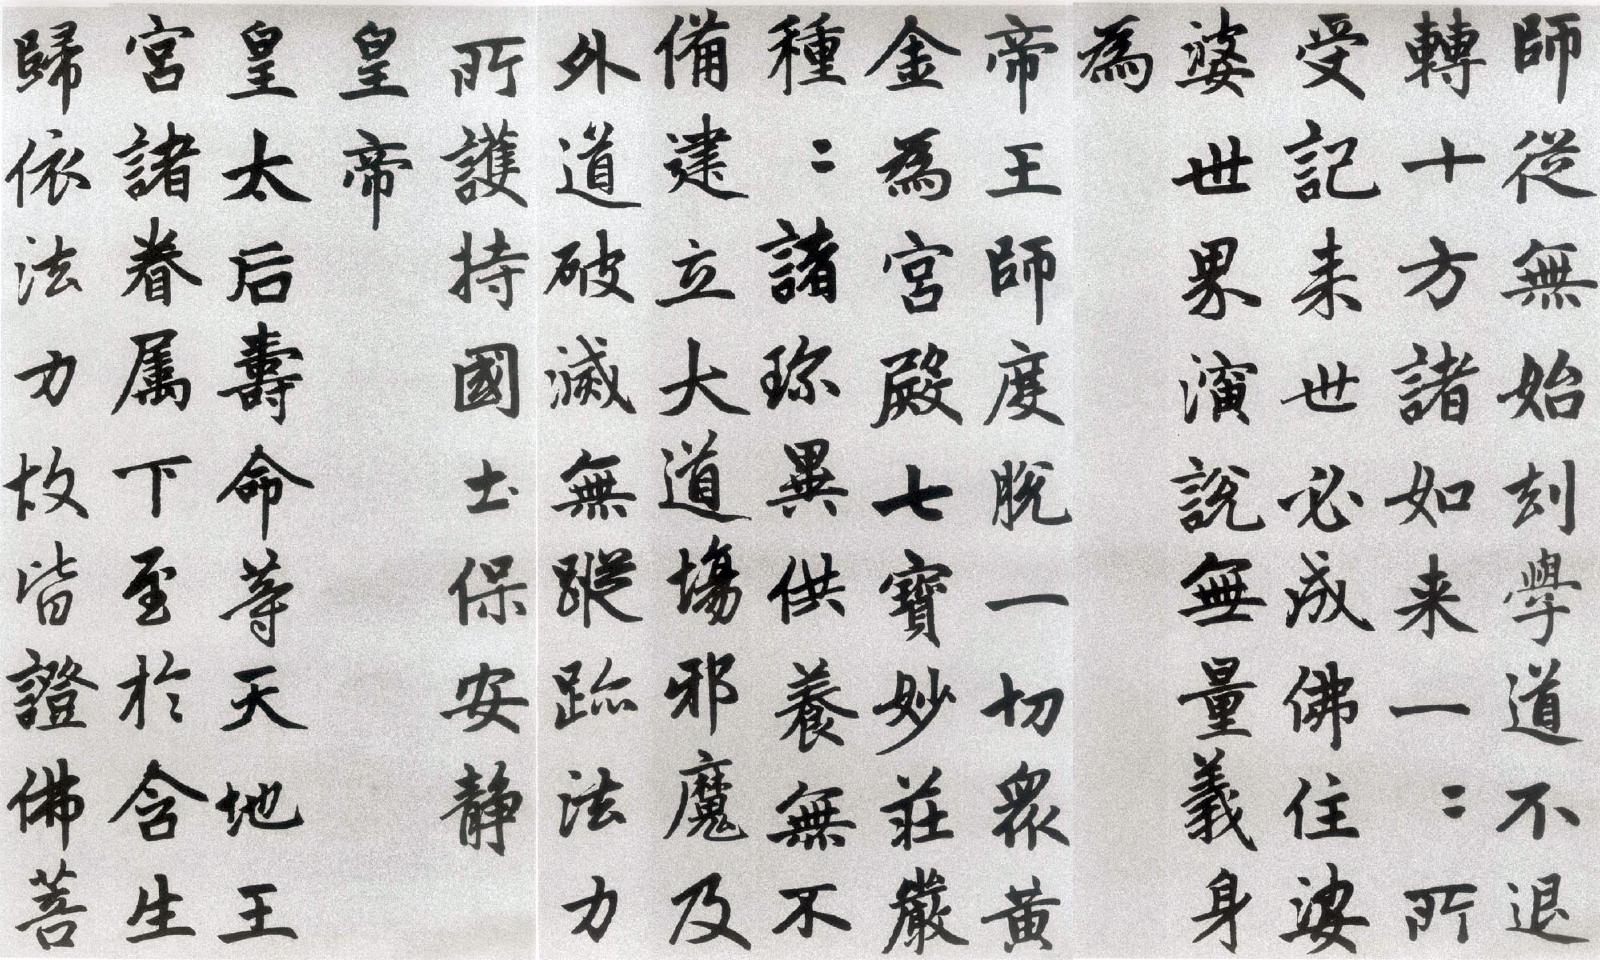 師從無始刻學道不退
轉十方諸如来一〻所
受記来世必成佛住娑
婆世界演說無量義身
為
帝王師度脫一切眾黃
金為宮殿七寶妙莊嚴
種〻諸珎異供養無不
備建立大道場邪魔及
外道破滅無蹤跡法力
所護持國土保安静
皇帝
皇太后壽命等天地王
宮諸眷属下至於含生
歸依法力故皆證佛菩